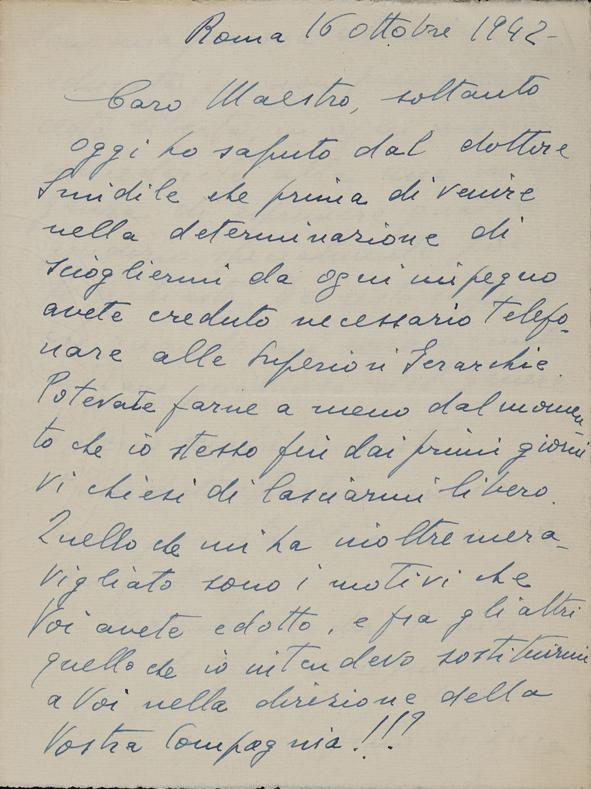 Roma 16 ottobre 1942-
Caro Maestro, soltanto
oggi ho saputo dal dottore
che prima di venire
nella determinazione di
sciogliermi da ogni impegno
avete creduto necessario telefo-
nare alle Superiori Gerarchie.
Potevate farne a meno dal momen-
to che io stesso fin dai primi giorni
vi chiesi di lasciarmi libero.
Quello che mi ha inoltre mera-
vigliato sono i motivi che
Voi avete edotto, e fra gli altri
quello che io intendevo sostituirmi
a Voi nella direzione della
Vostra Compagnia!!!